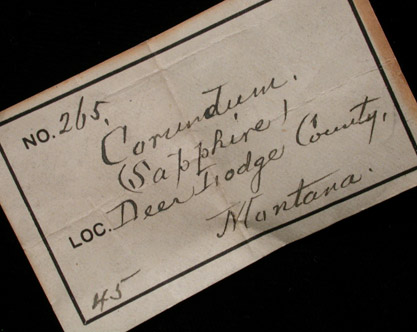 NO. 265.
Corundum.
(Sapphire)
LOC. Deer Lodge County,
Montana.
45